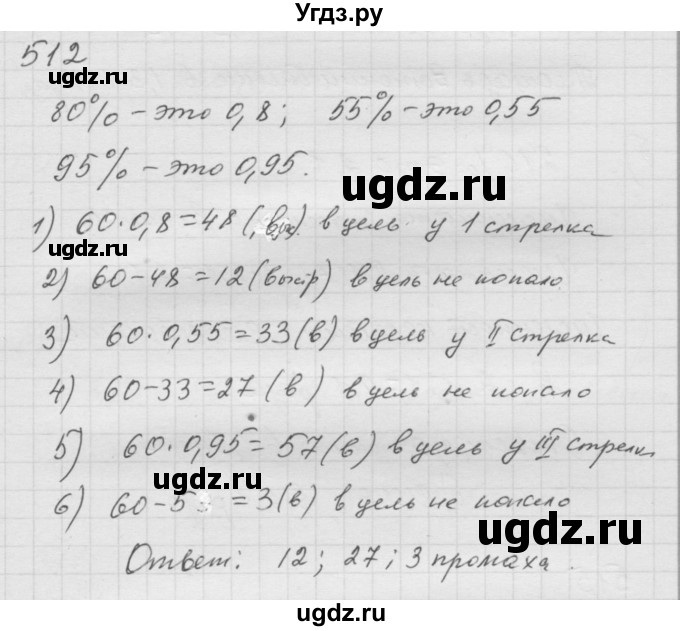 Угдз.ру
512
ugdz.ru
80% – это 0,8; 55% – это 0,55
95% – это 0,95.
ugdz.ru
1) 60·0,8=48( ) в цель у 1 стрелка
2) 60–48=12(выстр) в цель не попало
ugdz.ru
3) 60·0,55=33(в) в цель у II стрелка
4) 60–33=27(в) в цель не попало
5) 60·0,95=57(в) в цель у III стрелк
ugdz.ru
6) 60–5 =3(в) в цель не попало
ugdz.ru
Ответ: 12; 27; 3 промаха.
ugdz.ru